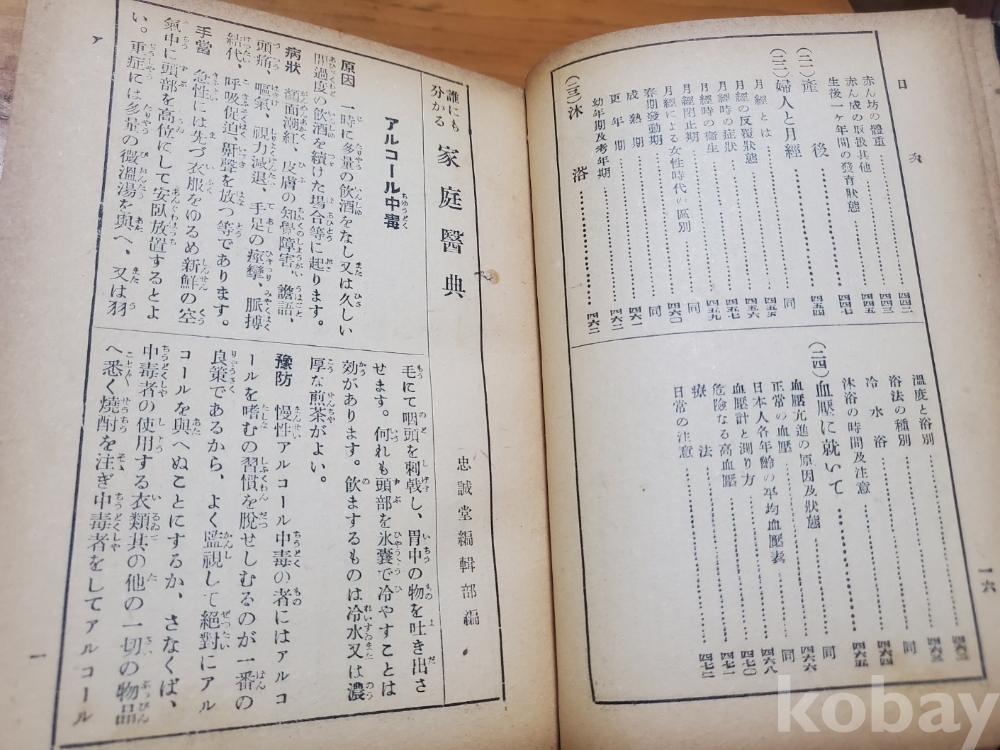 目次
一六
赤ん坊の體重……………四四二
赤ん坊の取扱其他……………四四五
生後一ヶ年間の發育狀態……………四四七
(二二)産後……………四五四
(二三)婦人と月經……………同
月經とは……………四五五
月經の反覆狀態……………四五六
月經時の症狀……………四五七
月經時の衞生……………四五九
月經閉止期……………四六〇
月經による女性時代の區別……………同
春期發動期……………同
成熟期……………四六一
更年期……………四六二
幼年期及老年期
(二三)沐浴……………四六二
溫度と浴別……………四六三
浴法の種別……………四六三
冷水浴……………四六四
沐浴の時間及注意……………四六五
(二四)血壓に就いて……………同
血壓亢進の原因及狀態……………四六六
正常の血壓……………同
日本人各年齡の平均血壓表……………四六八
血壓計と測り方……………四七〇
危險なる高血壓……………四七一
療法……………四七二
日常の注意
誰にも分かる 家庭醫典
忠誠堂編輯部編
アルコール中毒
原因 一時に多量の飲酒をなし又は久しい
間過度の飲酒を續けた場合等に起ります。
病狀 顏面潮紅、皮膚の知覺障害、譫語、
頭痛、嘔氣、視力減退、手足の痙攣、脈搏
結代、呼吸促迫、鼾聲を放つ等であります。
手當 急性には先づ衣服をゆるめ新鮮の空
氣中に頭部を高位にして安臥放置するとよ
い。重症には多量の微溫湯を與へ、又は羽
毛にて咽頭を刺戟し、胃中の物を吐き出さ
せます。何れも頭部を氷嚢で冷やすことは
効があります。飲まするものは冷水又は濃
厚な煎茶がよい。
豫防 慢性アルコール中毒の者にはアルコ
ールを嗜むの習慣を脫せしむるのが一番の
良策であるから、よく監視して絕對にアル
コールを與へぬことにするか、さなくば、
中毒者の使用する衣類其の他の一切の物品
へ悉く燒酎を注ぎ中毒者をしてアルコール
ア
一
kobay